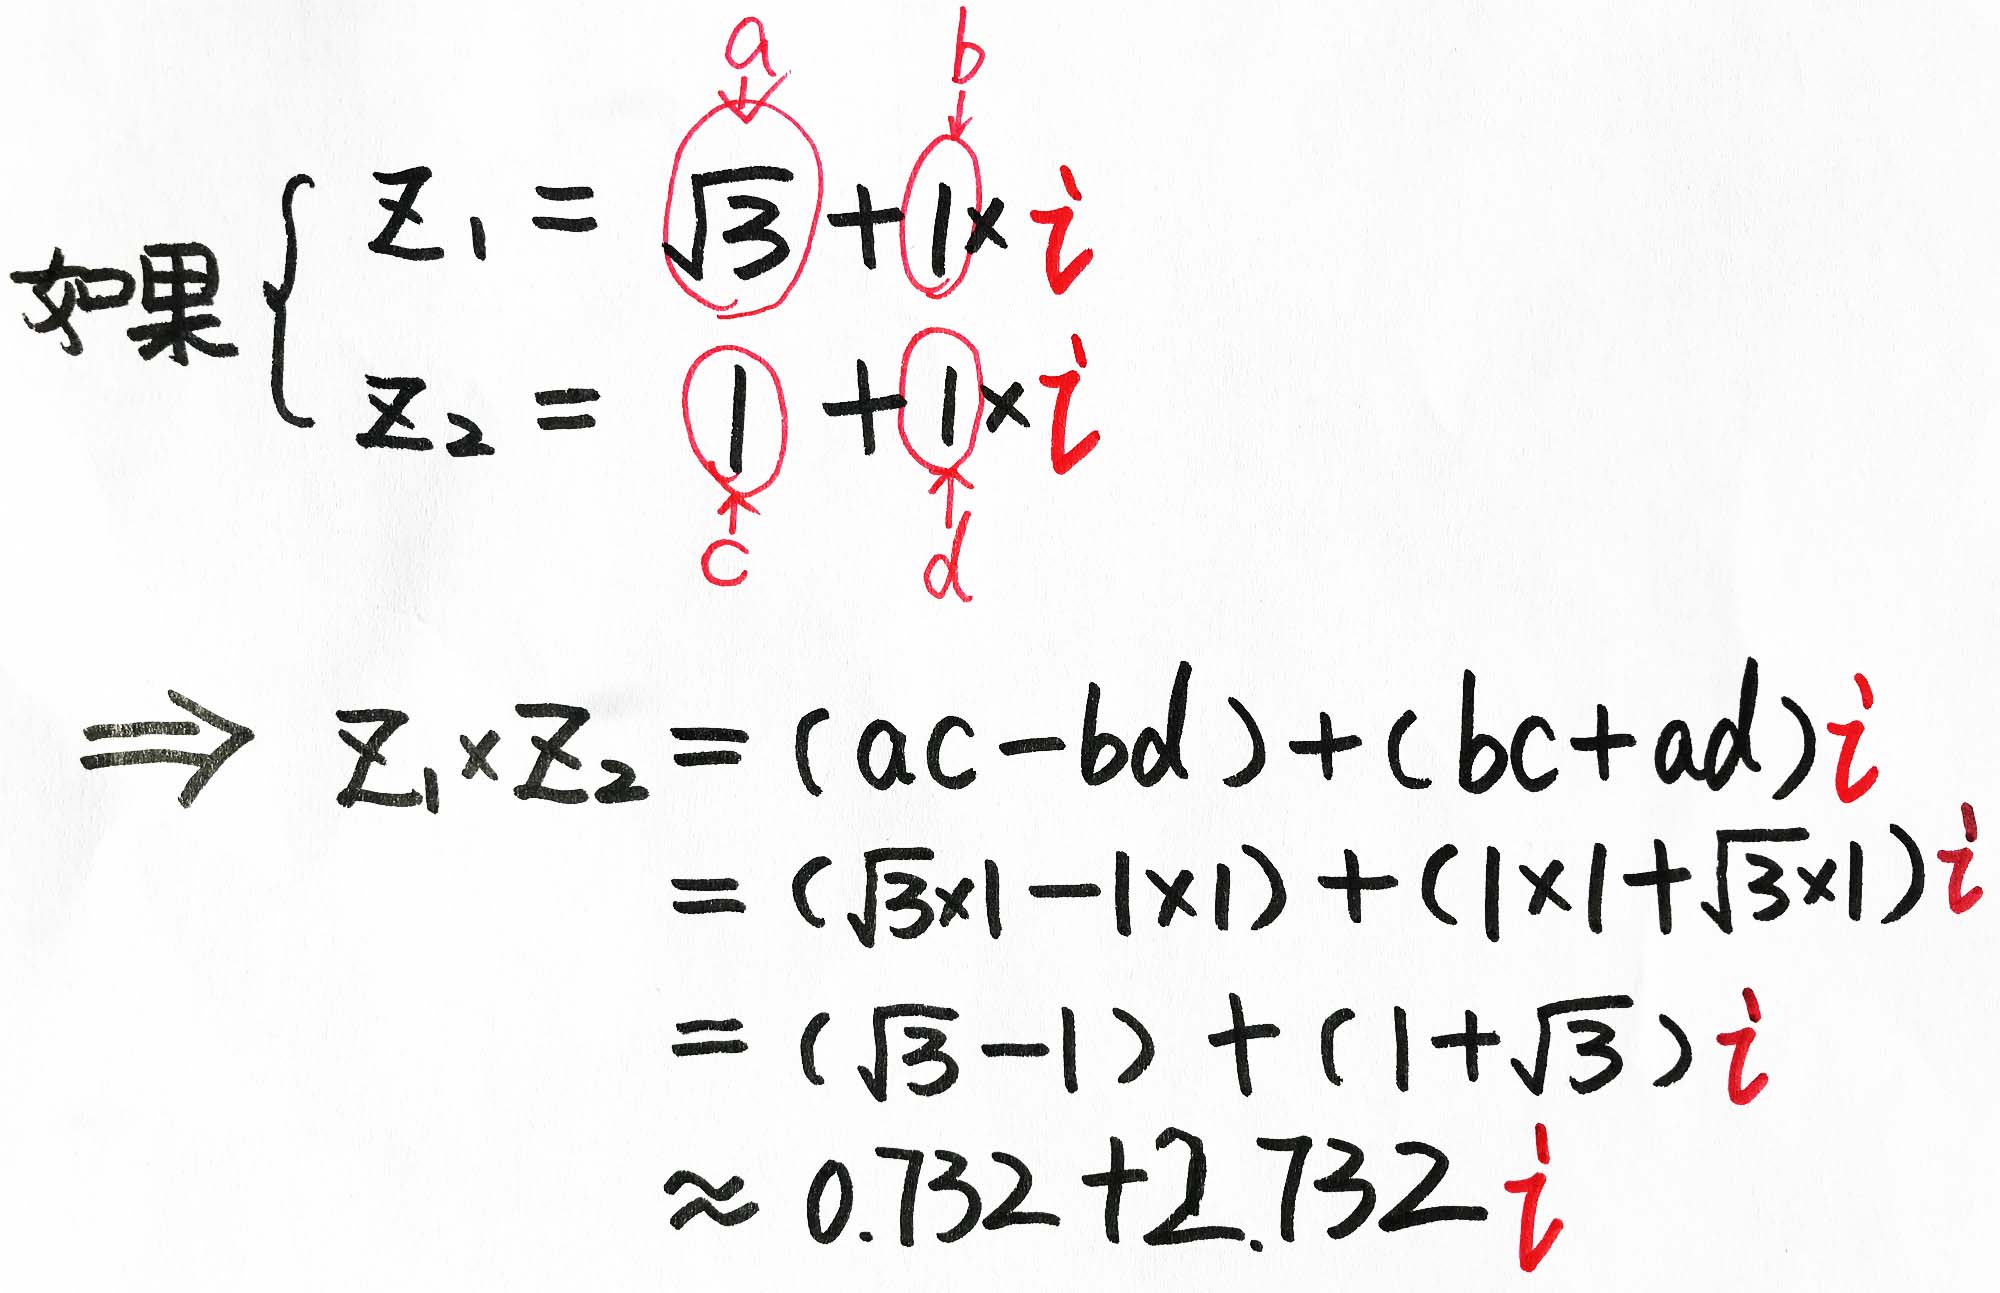 a b
如果 { z₁ = √3 + 1 × i
z₂ = 1 + 1 × i
c d
⇒ z₁ × z₂ = (ac − bd) + (bc + ad) i
= (√3×1 − 1×1) + (1×1 + √3×1) i
= (√3 − 1) + (1 + √3) i
≈ 0.732 + 2.732 i